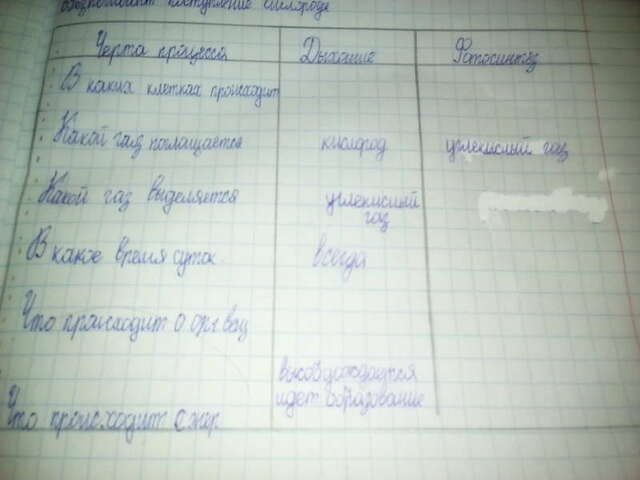 поступление кислорода
Черта процесса Дыхание Фотосинтез
В каких клетках происходит
Какой газ поглощается кислород углекислый газ
Какой газ выделяется углекислый
газ
В какое время суток всегда
Что происходит с орг. вещ
Что происходит с энер высвобождается
идет образование